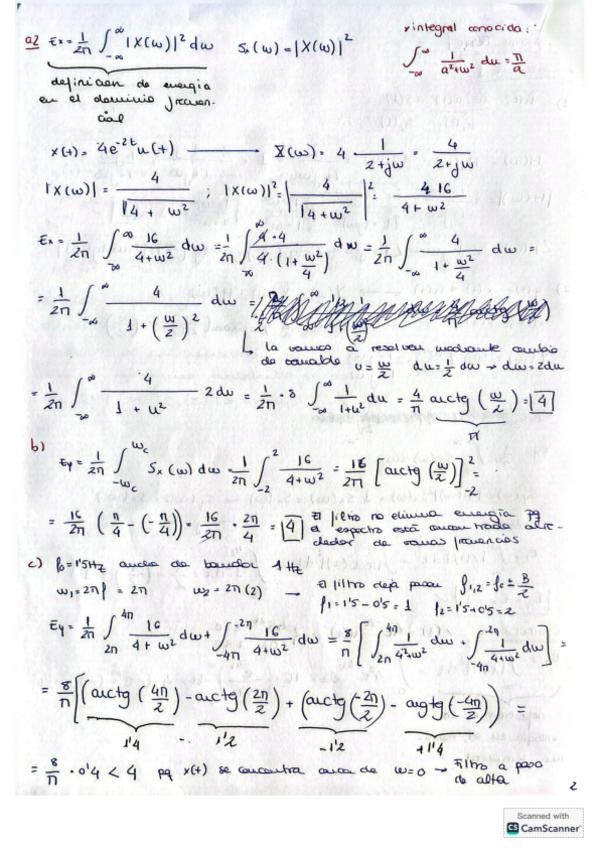 a2 Ex = 1/2π ∫_{-∞}^{∞} |X(ω)|² dω   Sx(ω) = |X(ω)|²   * integral conocida:
∫_{-∞}^{∞} 1/(a²+ω²) dω = π/a
definicion de energia
en el dominio frecuen-
cial
x(t) = 4e^{-2t} u(t) → X(ω) = 4 · 1/(2+jω) = 4/(2+jω)
|X(ω)| = 4/√(4+ω²) ; |X(ω)|² = |4/√(4+ω²)|² = 16/(4+ω²)
Ex = 1/2π ∫_{-∞}^{∞} 16/(4+ω²) dω = 1/2π ∫_{-∞}^{∞} 4·4/(4·(1+ω²/4)) dω = 1/2π ∫_{-∞}^{∞} 4/(1+ω²/4) dω =
= 1/2π ∫_{-∞}^{∞} 4/(1+(ω/2)²) dω =
la vamos a resolver mediante cambio
de variable u = ω/2   du = 1/2 dω → dω = 2du
= 1/2π ∫_{-∞}^{∞} 4/(1+u²) 2du = 1/2π · 8 ∫_{-∞}^{∞} 1/(1+u²) du = 4/π arctg(ω/2) = 4
π
b) Ey = 1/2π ∫_{-ωc}^{ωc} Sx(ω) dω = 1/2π ∫_{-2}^{2} 16/(4+ω²) = 16/2π [arctg(ω/2)]_{-2}^{2} =
= 16/2π (π/4 - (-π/4)) = 16/2π · 2π/4 = 4   El filtro no elimina energia pq
el espectro está concentrado alre-
dedor de frecuencias
c) f0 = 1'5Hz   ancho de banda 1 Hz
ω1 = 2πf = 2π   ω2 = 2π(2) → El filtro deja pasar f1,2 = fc ± B/2
f1 = 1'5 - 0'5 = 1   f2 = 1'5 + 0'5 = 2
Ey = 1/2π ∫_{2π}^{4π} 16/(4+ω²) dω + ∫_{-4π}^{-2π} 16/(4+ω²) dω = 8/π [∫_{2π}^{4π} 1/(4+ω²) dω + ∫_{-4π}^{-2π} 1/(4+ω²) dω] =
= 8/π [(arctg(4π/2) - arctg(2π/2) + (arctg(-2π/2) - argtg(-4π/2)) =
1'4 - 1'2   -1'2   +1'4
= 8/π · 0'4 < 4 pq x(t) se concentra cerca de ω=0 → Filtro a paso
de alta
2
Scanned with
CS CamScanner